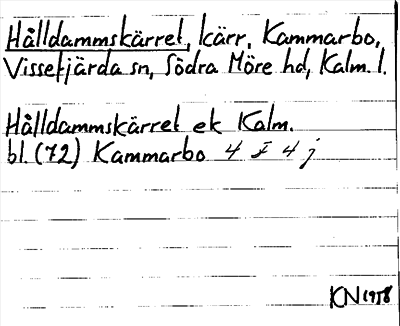 Hålldammskärret, kärr, Kammarbo,
Vissefjärda sn, Södra Möre hd, Kalm. l.
Hålldammskärret ek Kalm.
bl. (72) Kammarbo 4 I 4 j
KN 1958